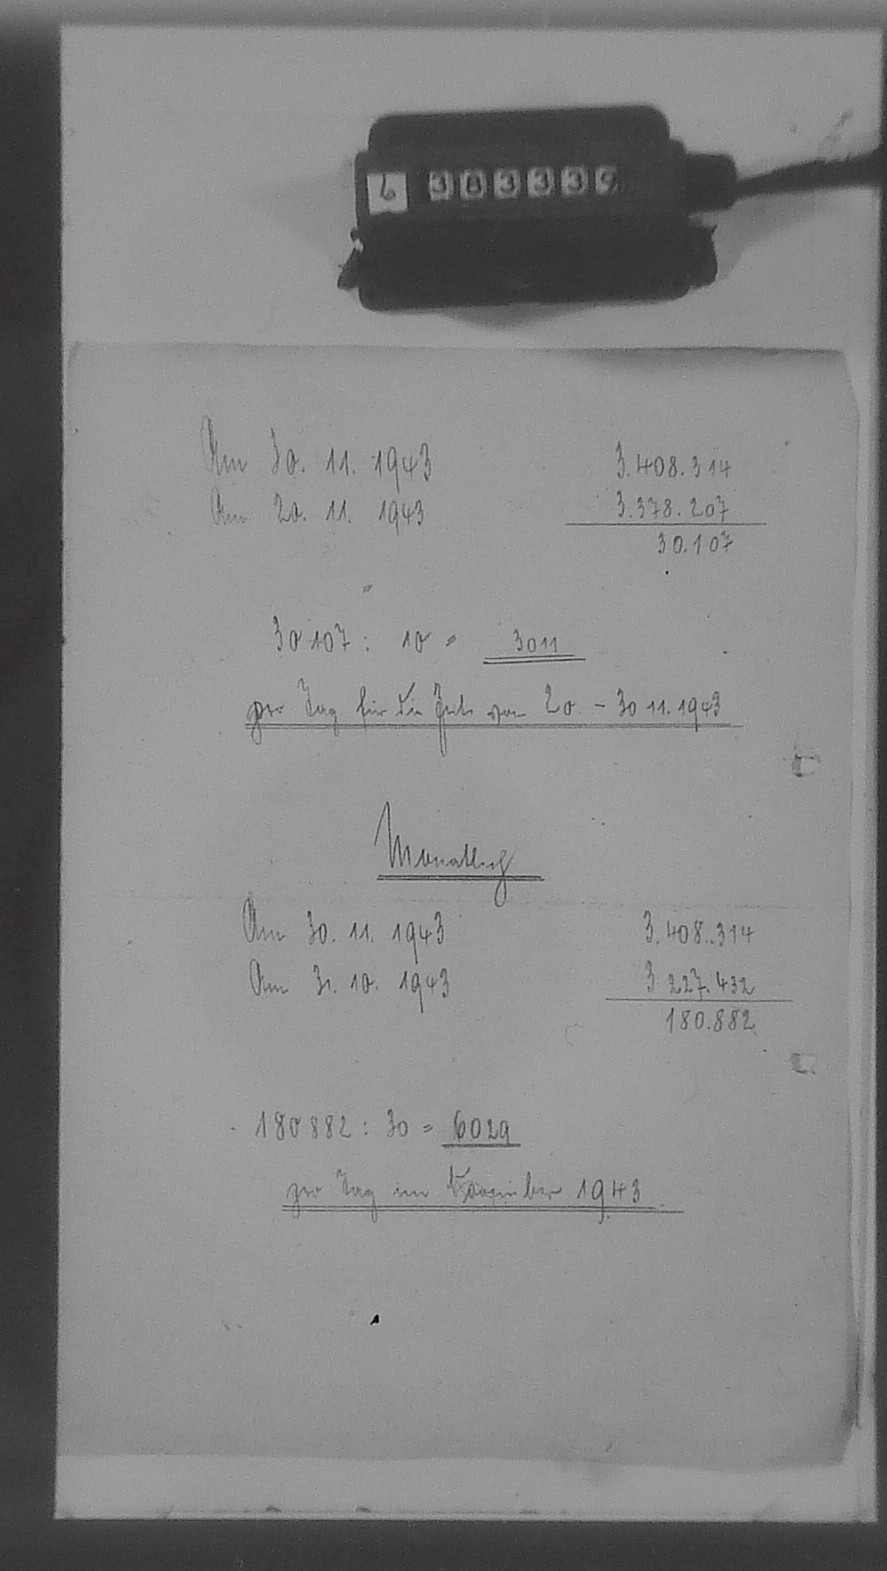 6 383339
Am 30. 11. 1943 3.408.314
Am 20. 11. 1943 3.378.207
30.107
30107 : 10 = 3011
pro Tag für die Zeit von 20. - 30 11. 1943
Monatlich
Am 30. 11. 1943 3.408.314
Am 31. 10. 1943 3 227.432
180.882
180882 : 30 = 6029
pro Tag im November 1943